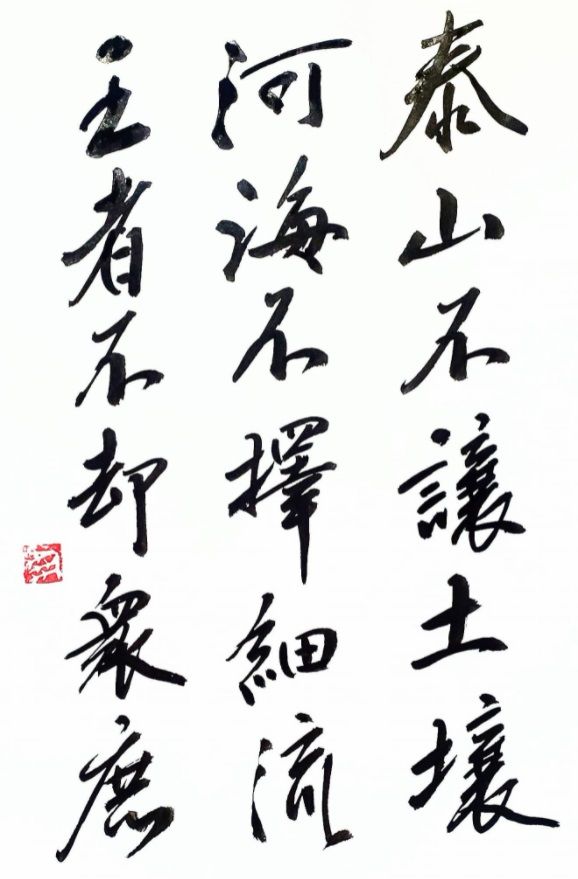 泰山不讓土壤
河海不擇細流
王者不却衆庶